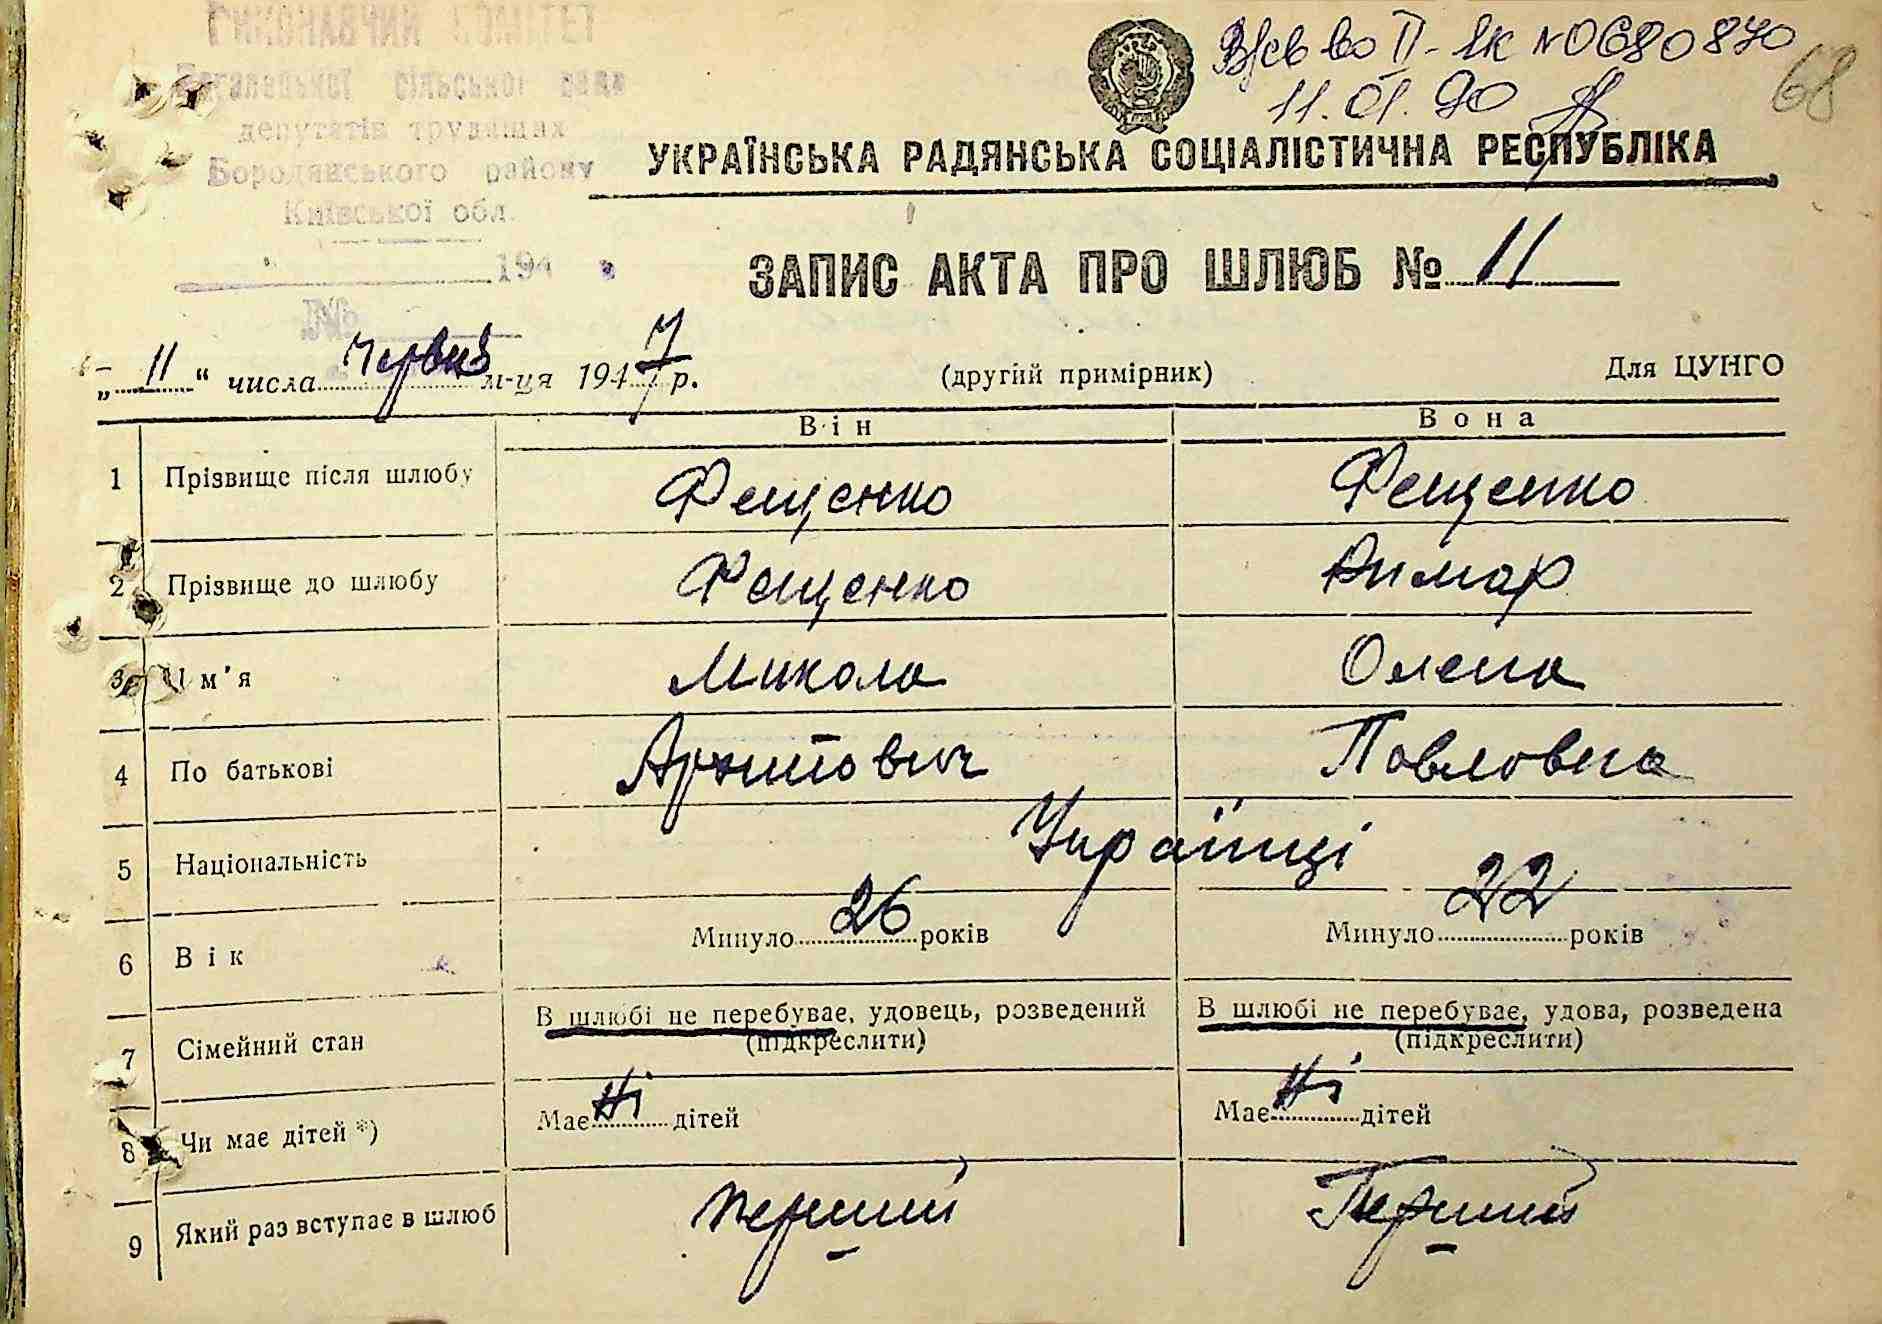 ВИКОНАВЧИЙ КОМІТЕТ
сільської ради
депутатів трудящих
Бородянського району
Київської обл.
194
№
Вж св во II-ЯК №0680870
11.01.90
68
УКРАЇНСЬКА РАДЯНСЬКА СОЦІАЛІСТИЧНА РЕСПУБЛІКА
ЗАПИС АКТА ПРО ШЛЮБ № 11
„ 11 “ числа червня м-ця 1947 р. (другий примірник) Для ЦУНГО
Він Вона
1 Прізвище після шлюбу Фещенко Фещенко
2 Прізвище до шлюбу Фещенко Римар
3 Ім'я Микола Олена
4 По батькові Архипович Павловна
5 Національність Українці
6 Вік Минуло 26 років Минуло 22 років
7 Сімейний стан В шлюбі не перебуває, удовець, розведений (підкреслити) В шлюбі не перебуває, удова, розведена (підкреслити)
8 Чи має дітей *) Має ні дітей Має ні дітей
9 Який раз вступає в шлюб перший Перший